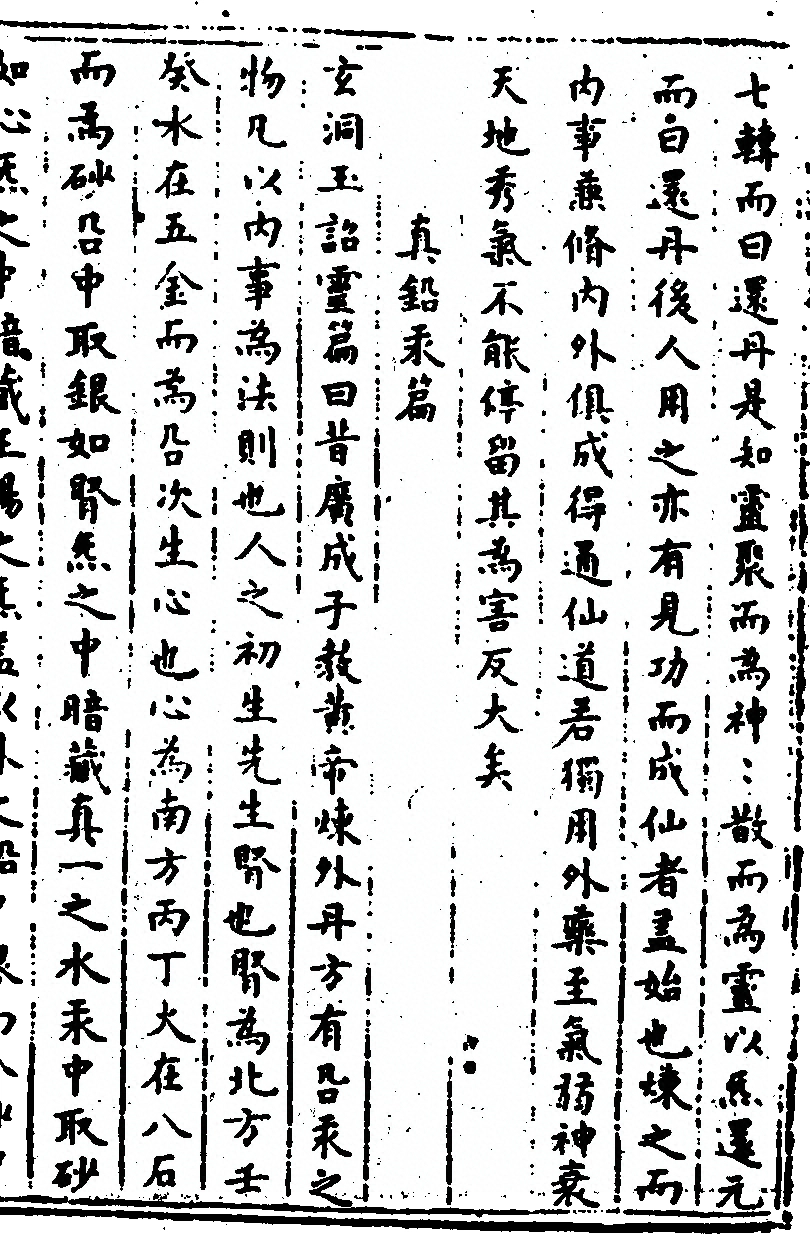 七轉而曰還丹是知靈聚而為神〻散而為靈以炁還元
而曰還丹後人用之亦有見功而成仙者盖始也煉之而
內事兼修內外俱成得通仙道若獨用外藥至氣弱神衰
天地秀氣不能停留其為害反大矣
真鉛汞篇
玄洞玉詔靈篇曰昔廣成子教黃帝煉外丹方有鉛汞之
物凡以內事為法則也人之初生先生腎也腎為北方壬
癸水在五金而為鉛次生心也心為南方丙丁火在八石
而為砂鉛中取銀如腎炁之中暗藏真一之水汞中取砂
如心炁之中暗藏正陽之炁盖以外